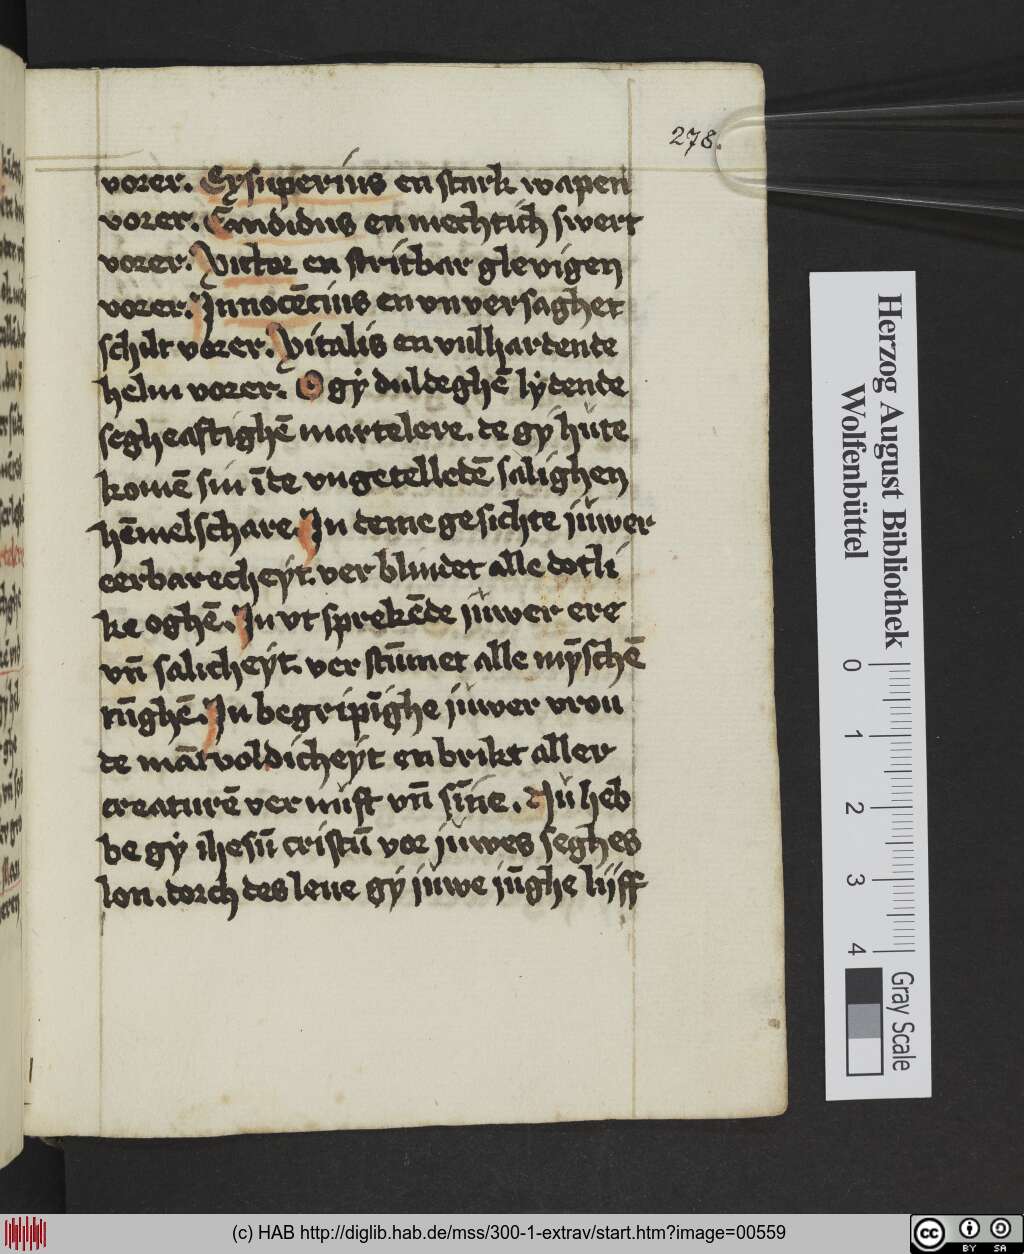 278.
vorer. Exsuperius en stark wapen
vorer. Candidus en mechtich swert
vorer. Victor en stritbar glevigen
vorer. Innocēcius en vnversaghet
schilt vorer. Vitalis en vulhardende
helm vorer. O gy duldeghē lydende
segheaftighē martelere. de gy hüte
komē sin ī de vngetelledē salighen
hēmelschare. In deme gesichte iüwer
eerbarecheyt. verblindet alle dotli
ke oghē. In vt sprekēde iüwer ere
vn̄ salicheyt. verstūmet alle mȳschē
tūghē. In begripīghe iüwer vrou
de mānvoldicheyt enbrikt aller
creaturē vernüft vn̄ sīne. Nü heb
be gy ihesū cristū vor iüwes seghes
lon. dorch des leue gy iuwe iūghe lijff
Herzog August Bibliothek
Wolfenbüttel
0 1 2 3 4
Gray Scale
(c) HAB http://diglib.hab.de/mss/300-1-extrav/start.htm?image=00559
cc BY SA